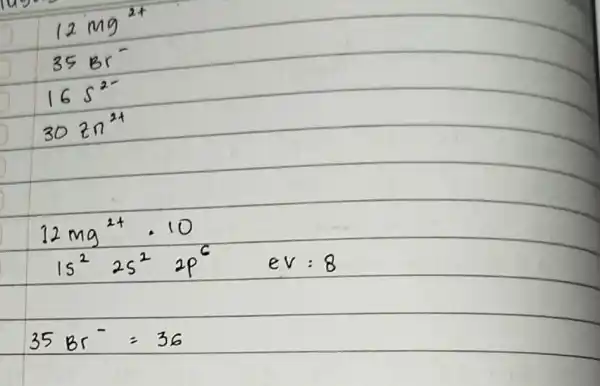 12 Mg²⁺
35 Br⁻
16 S²⁻
30 Zn²⁺
12 Mg²⁺ . 10
1s² 2s² 2p⁶ ev : 8
35 Br⁻ = 36